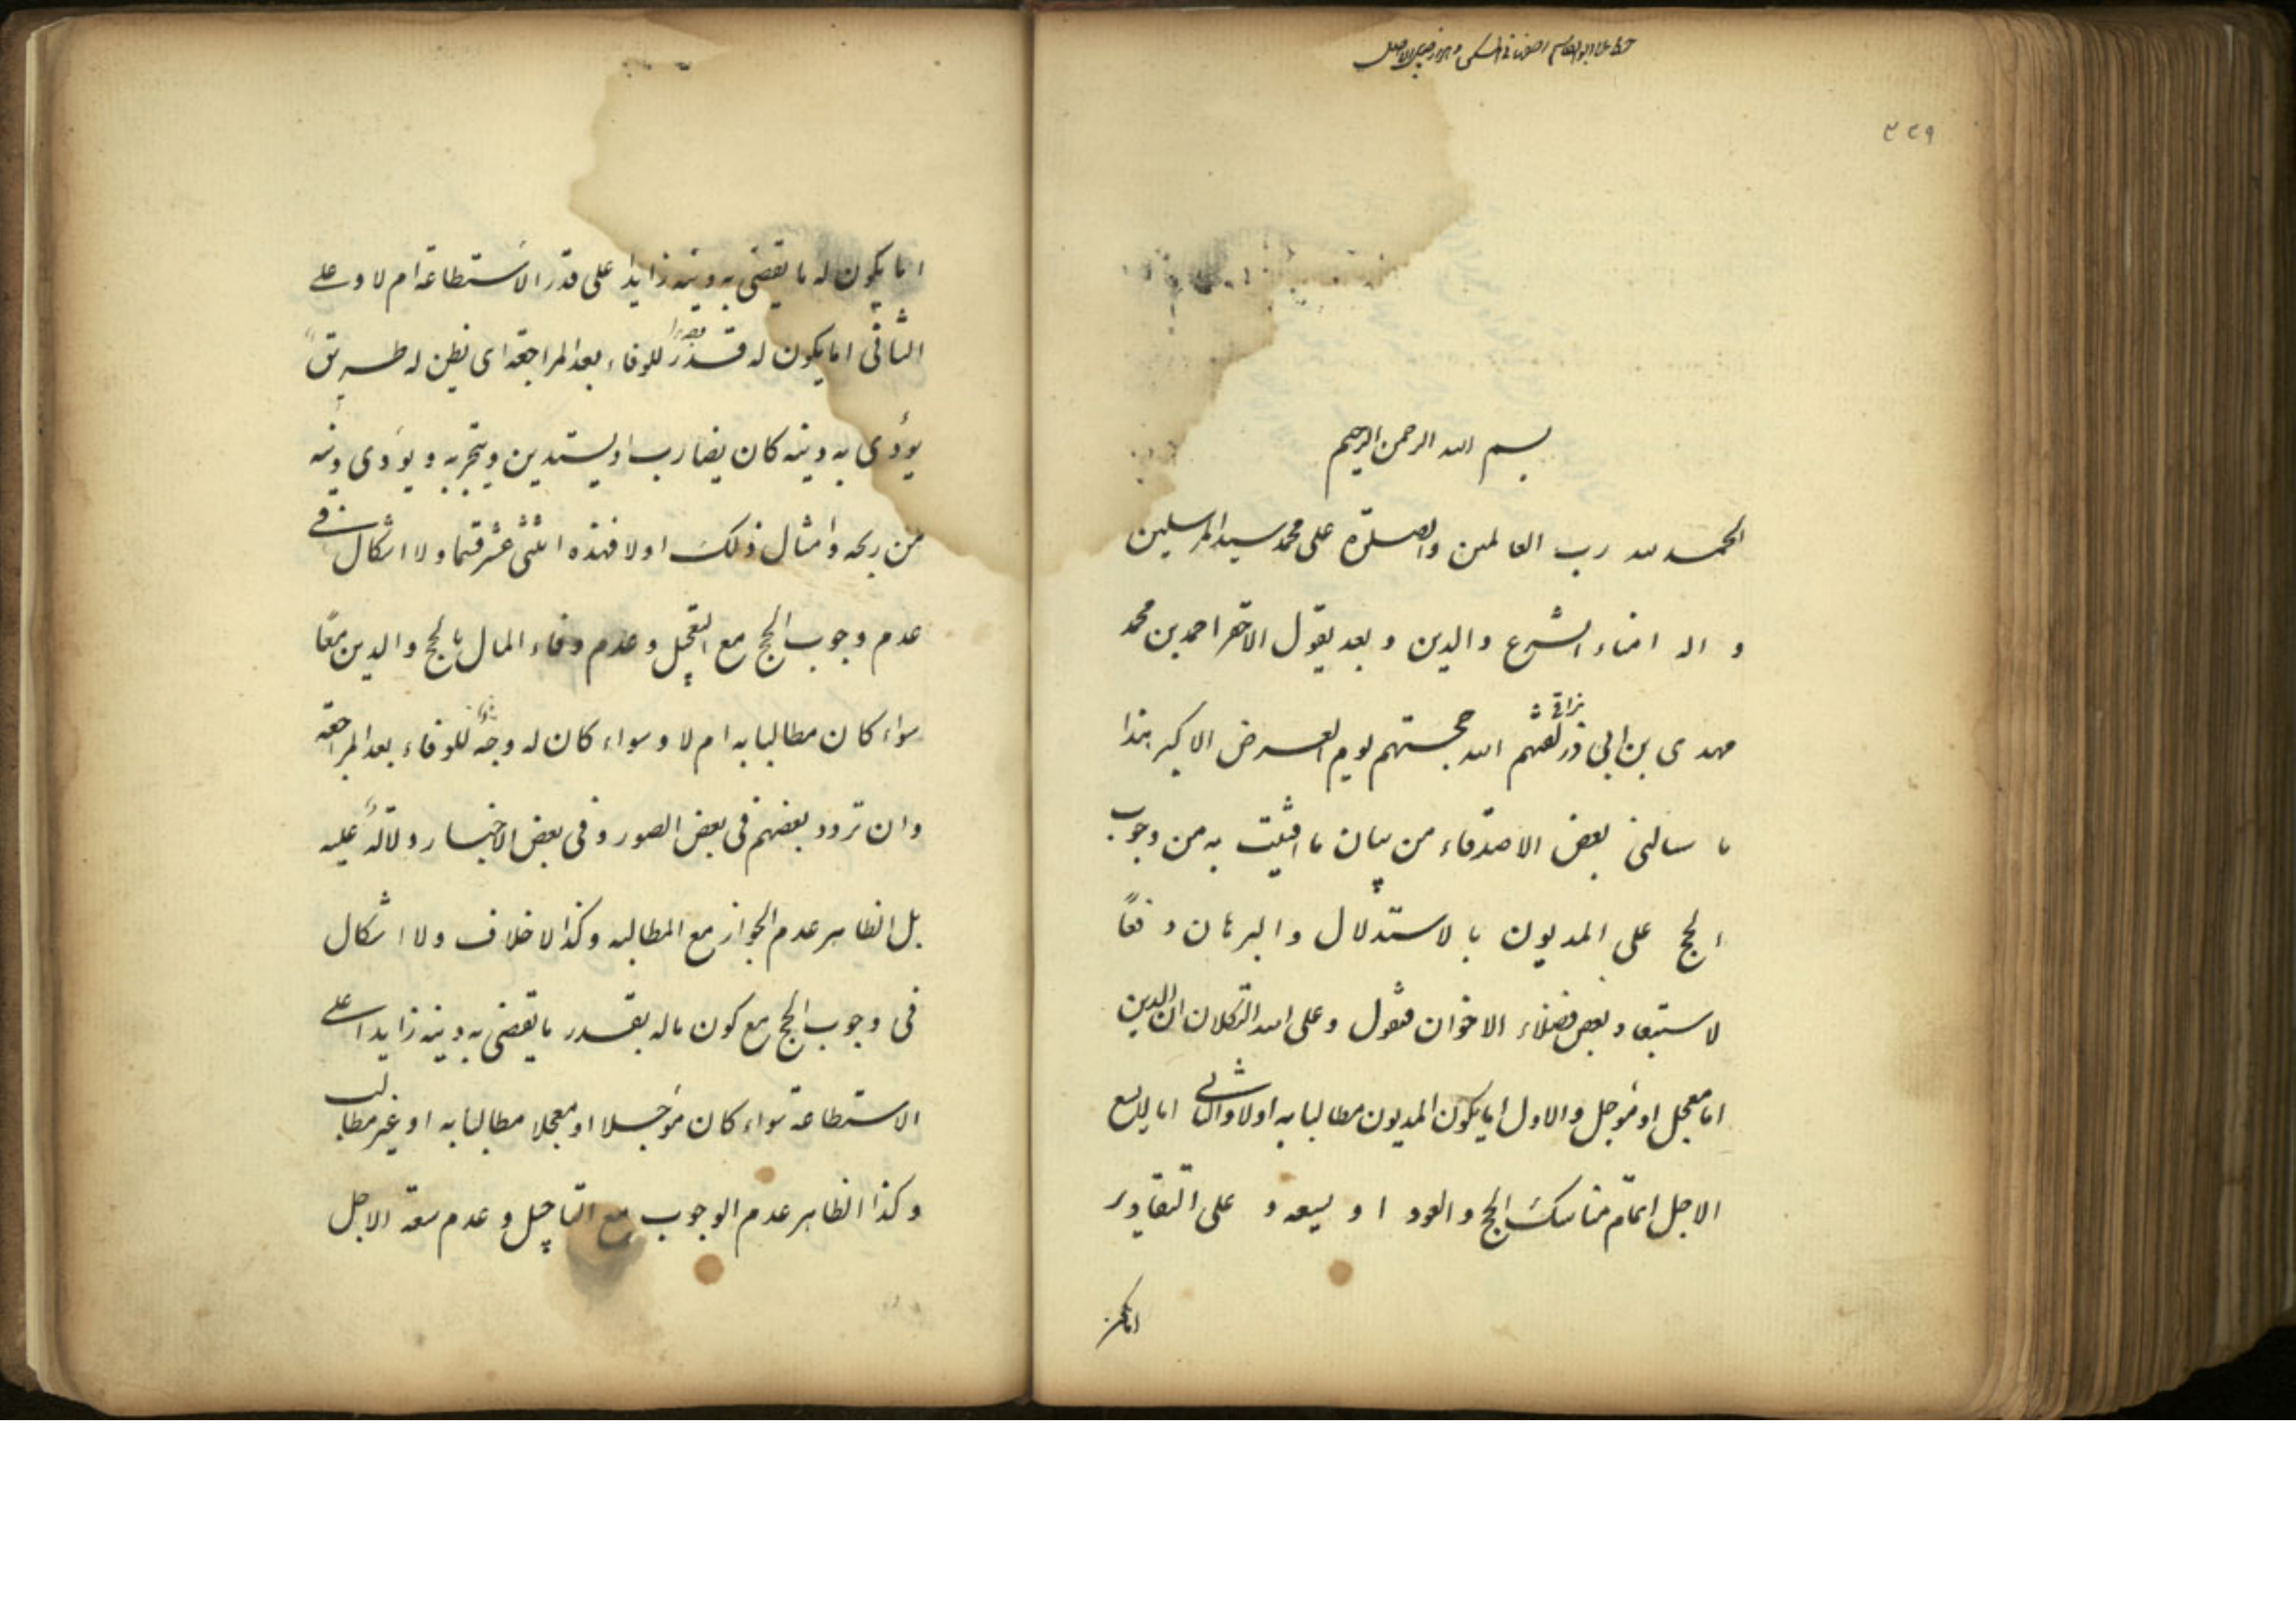 ٣٣٩
بسم الله الرحمن الرحيم
الحمد لله رب العالمين والصلوة على محمد سيد المرسلين
و اله امناء الشرع والدين و بعد يقول الاحقر احمد بن محمد
مهدى بن ابى ذر نراقى لقنهم الله حجتهم يوم العرض الاكبر هذا
ما سالنى بعض الاصدقاء من بيان ما افتيت به من وجوب
الحج على المديون بالاستدلال والبرهان دفعاً
لاستبعاد بعض فضلاء الاخوان فنقول وعلى الله التكلان ان الدين
اما معجل او مؤجل والاول اما يكون المديون مطالبا به اولا والثانى اما لا يسع
الاجل اتمام مناسك الحج والعود او يسعه و على التقادير
اما يكون
اما يكون له ما يقضى به دينه زايدا على قدر الاستطاعة ام لا وعلى
الثانى اما يكون له للوفاء بعد المراجعة اى يظن له طريق
يؤدى به دينه كان يضارب او يستدين ويتجر به و يؤدى دينه
من ربحه وامثال ذلك اولا فهذه اثنى عشر قسما ولا اشكال فى
عدم وجوب الحج مع التعجيل وعدم وفاء المال بالحج والدين معًا
سواء كان مطالبا به ام لا وسواء كان له وجه للوفاء بعد المراجعة
وان تردد بعضهم فى بعض الصور وفى بعض الاخبار دلالة عليه
بل الظاهر عدم الجواز مع المطالبه وكذا لا خلاف ولا اشكال
فى وجوب الحج مع كون ماله بقدر ما يقضى به دينه زايدا على
الاستطاعة سواء كان مؤجلا او معجلا مطالبا به او غير مطالب
وكذا الظاهر عدم الوجوب مع التاجيل وعدم سعة الاجل